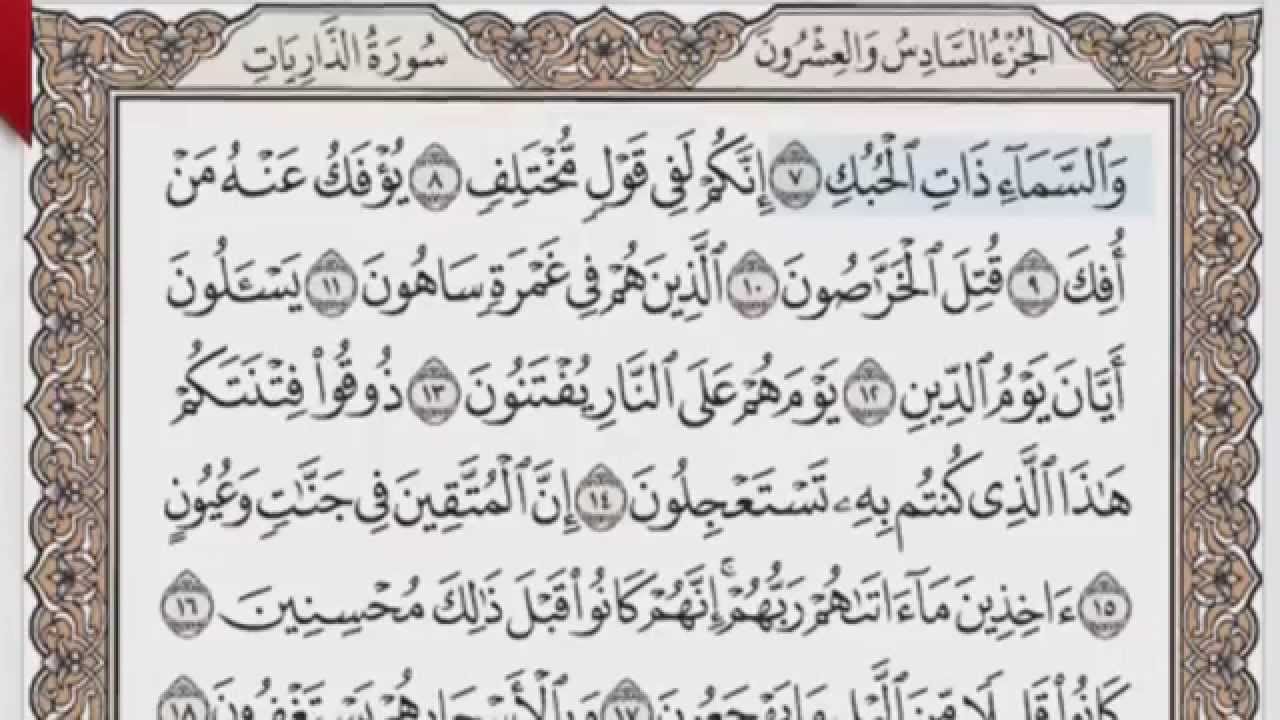 الجُزْءُ السَّادِسُ وَالعِشْرُونَ
سُورَةُ الذَّارِيَاتِ
وَٱلسَّمَآءِ ذَاتِ ٱلْحُبُكِ ٧ إِنَّكُمْ لَفِى قَوْلٍ مُّخْتَلِفٍ ٨ يُؤْفَكُ عَنْهُ مَنْ
أُفِكَ ٩ قُتِلَ ٱلْخَرَّٰصُونَ ١٠ ٱلَّذِينَ هُمْ فِى غَمْرَةٍ سَاهُونَ ١١ يَسْـَٔلُونَ
أَيَّانَ يَوْمُ ٱلدِّينِ ١٢ يَوْمَ هُمْ عَلَى ٱلنَّارِ يُفْتَنُونَ ١٣ ذُوقُوا۟ فِتْنَتَكُمْ
هَٰذَا ٱلَّذِى كُنتُم بِهِۦ تَسْتَعْجِلُونَ ١٤ إِنَّ ٱلْمُتَّقِينَ فِى جَنَّٰتٍ وَعُيُونٍ
١٥ ءَاخِذِينَ مَآ ءَاتَىٰهُمْ رَبُّهُمْ ۚ إِنَّهُمْ كَانُوا۟ قَبْلَ ذَٰلِكَ مُحْسِنِينَ ١٦
كَانُوا۟ قَلِيلًا مِّنَ ٱلَّيْلِ مَا يَهْجَعُونَ ١٧ وَبِٱلْأَسْحَارِ هُمْ يَسْتَغْفِرُونَ ١٨